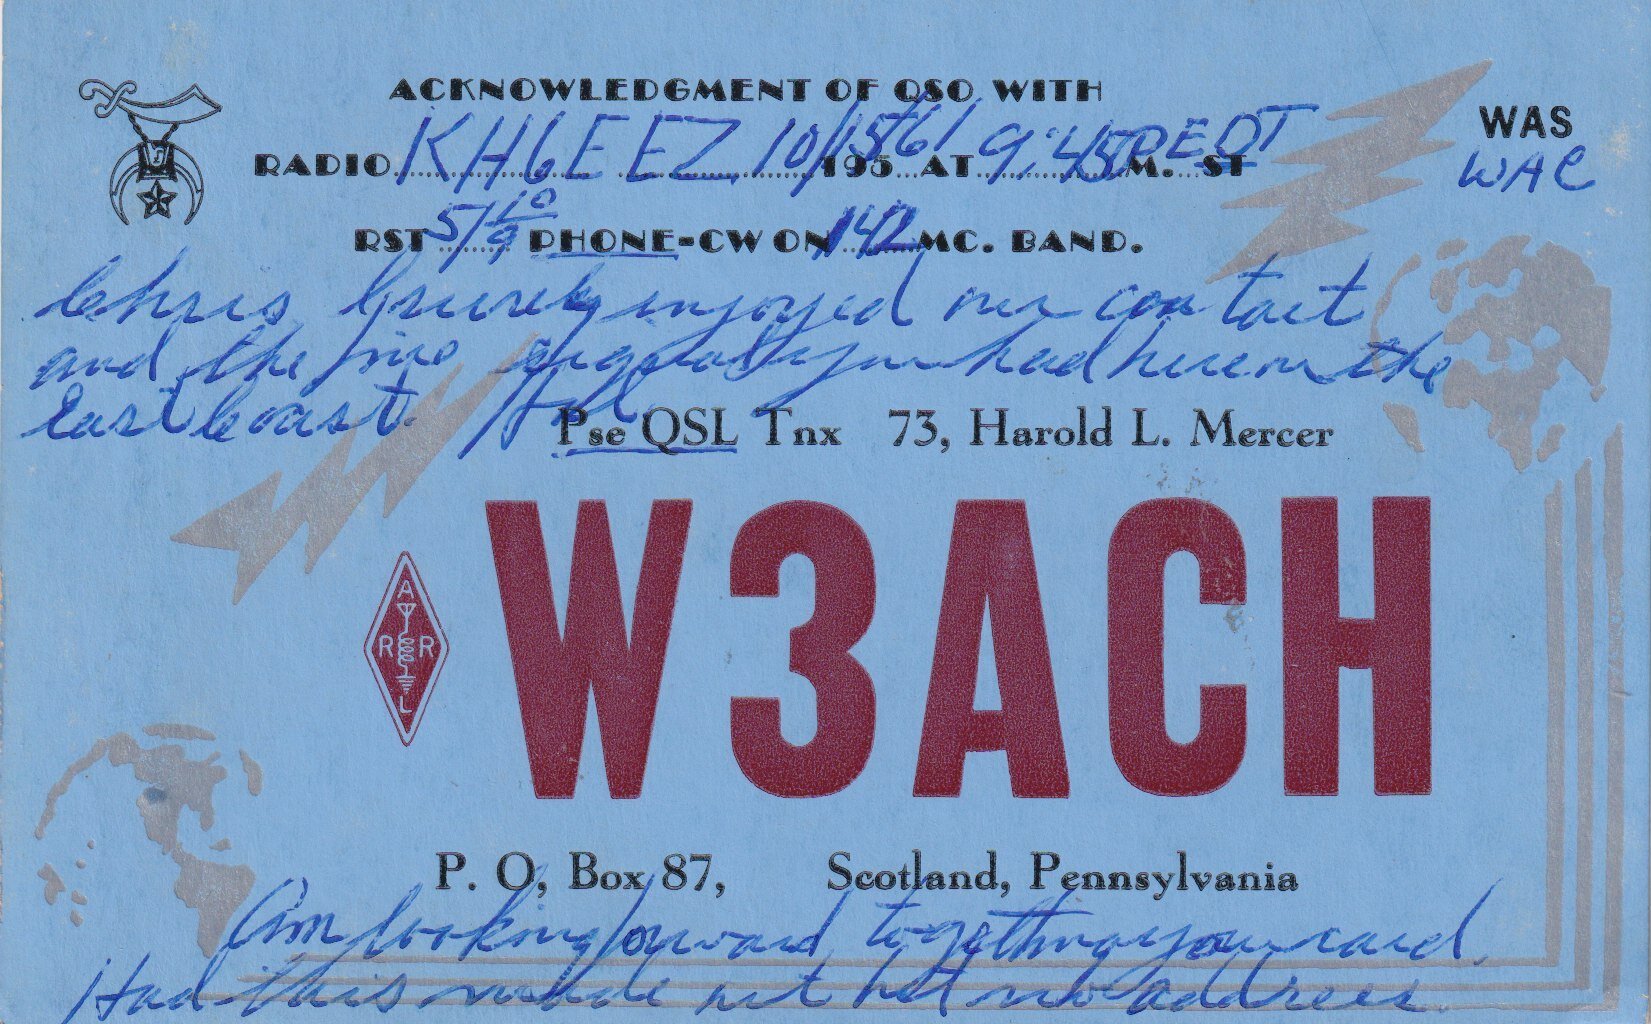 ACKNOWLEDGMENT OF QSO WITH
WAS
RADIO KH6EEZ 10/15/61 195 AT 9:45 P M. EDT ST
WAC
RST 5/9 10 PHONE-CW ON 14.2 MC. BAND.
Chris enjoyed our contact
and the fine signal you had here on the
East Coast. Hal
Pse QSL Tnx 73, Harold L. Mercer
W3ACH
A
R R
L
P. O, Box 87, Scotland, Pennsylvania
Am looking forward to getting your card.
Had this made out but no address.